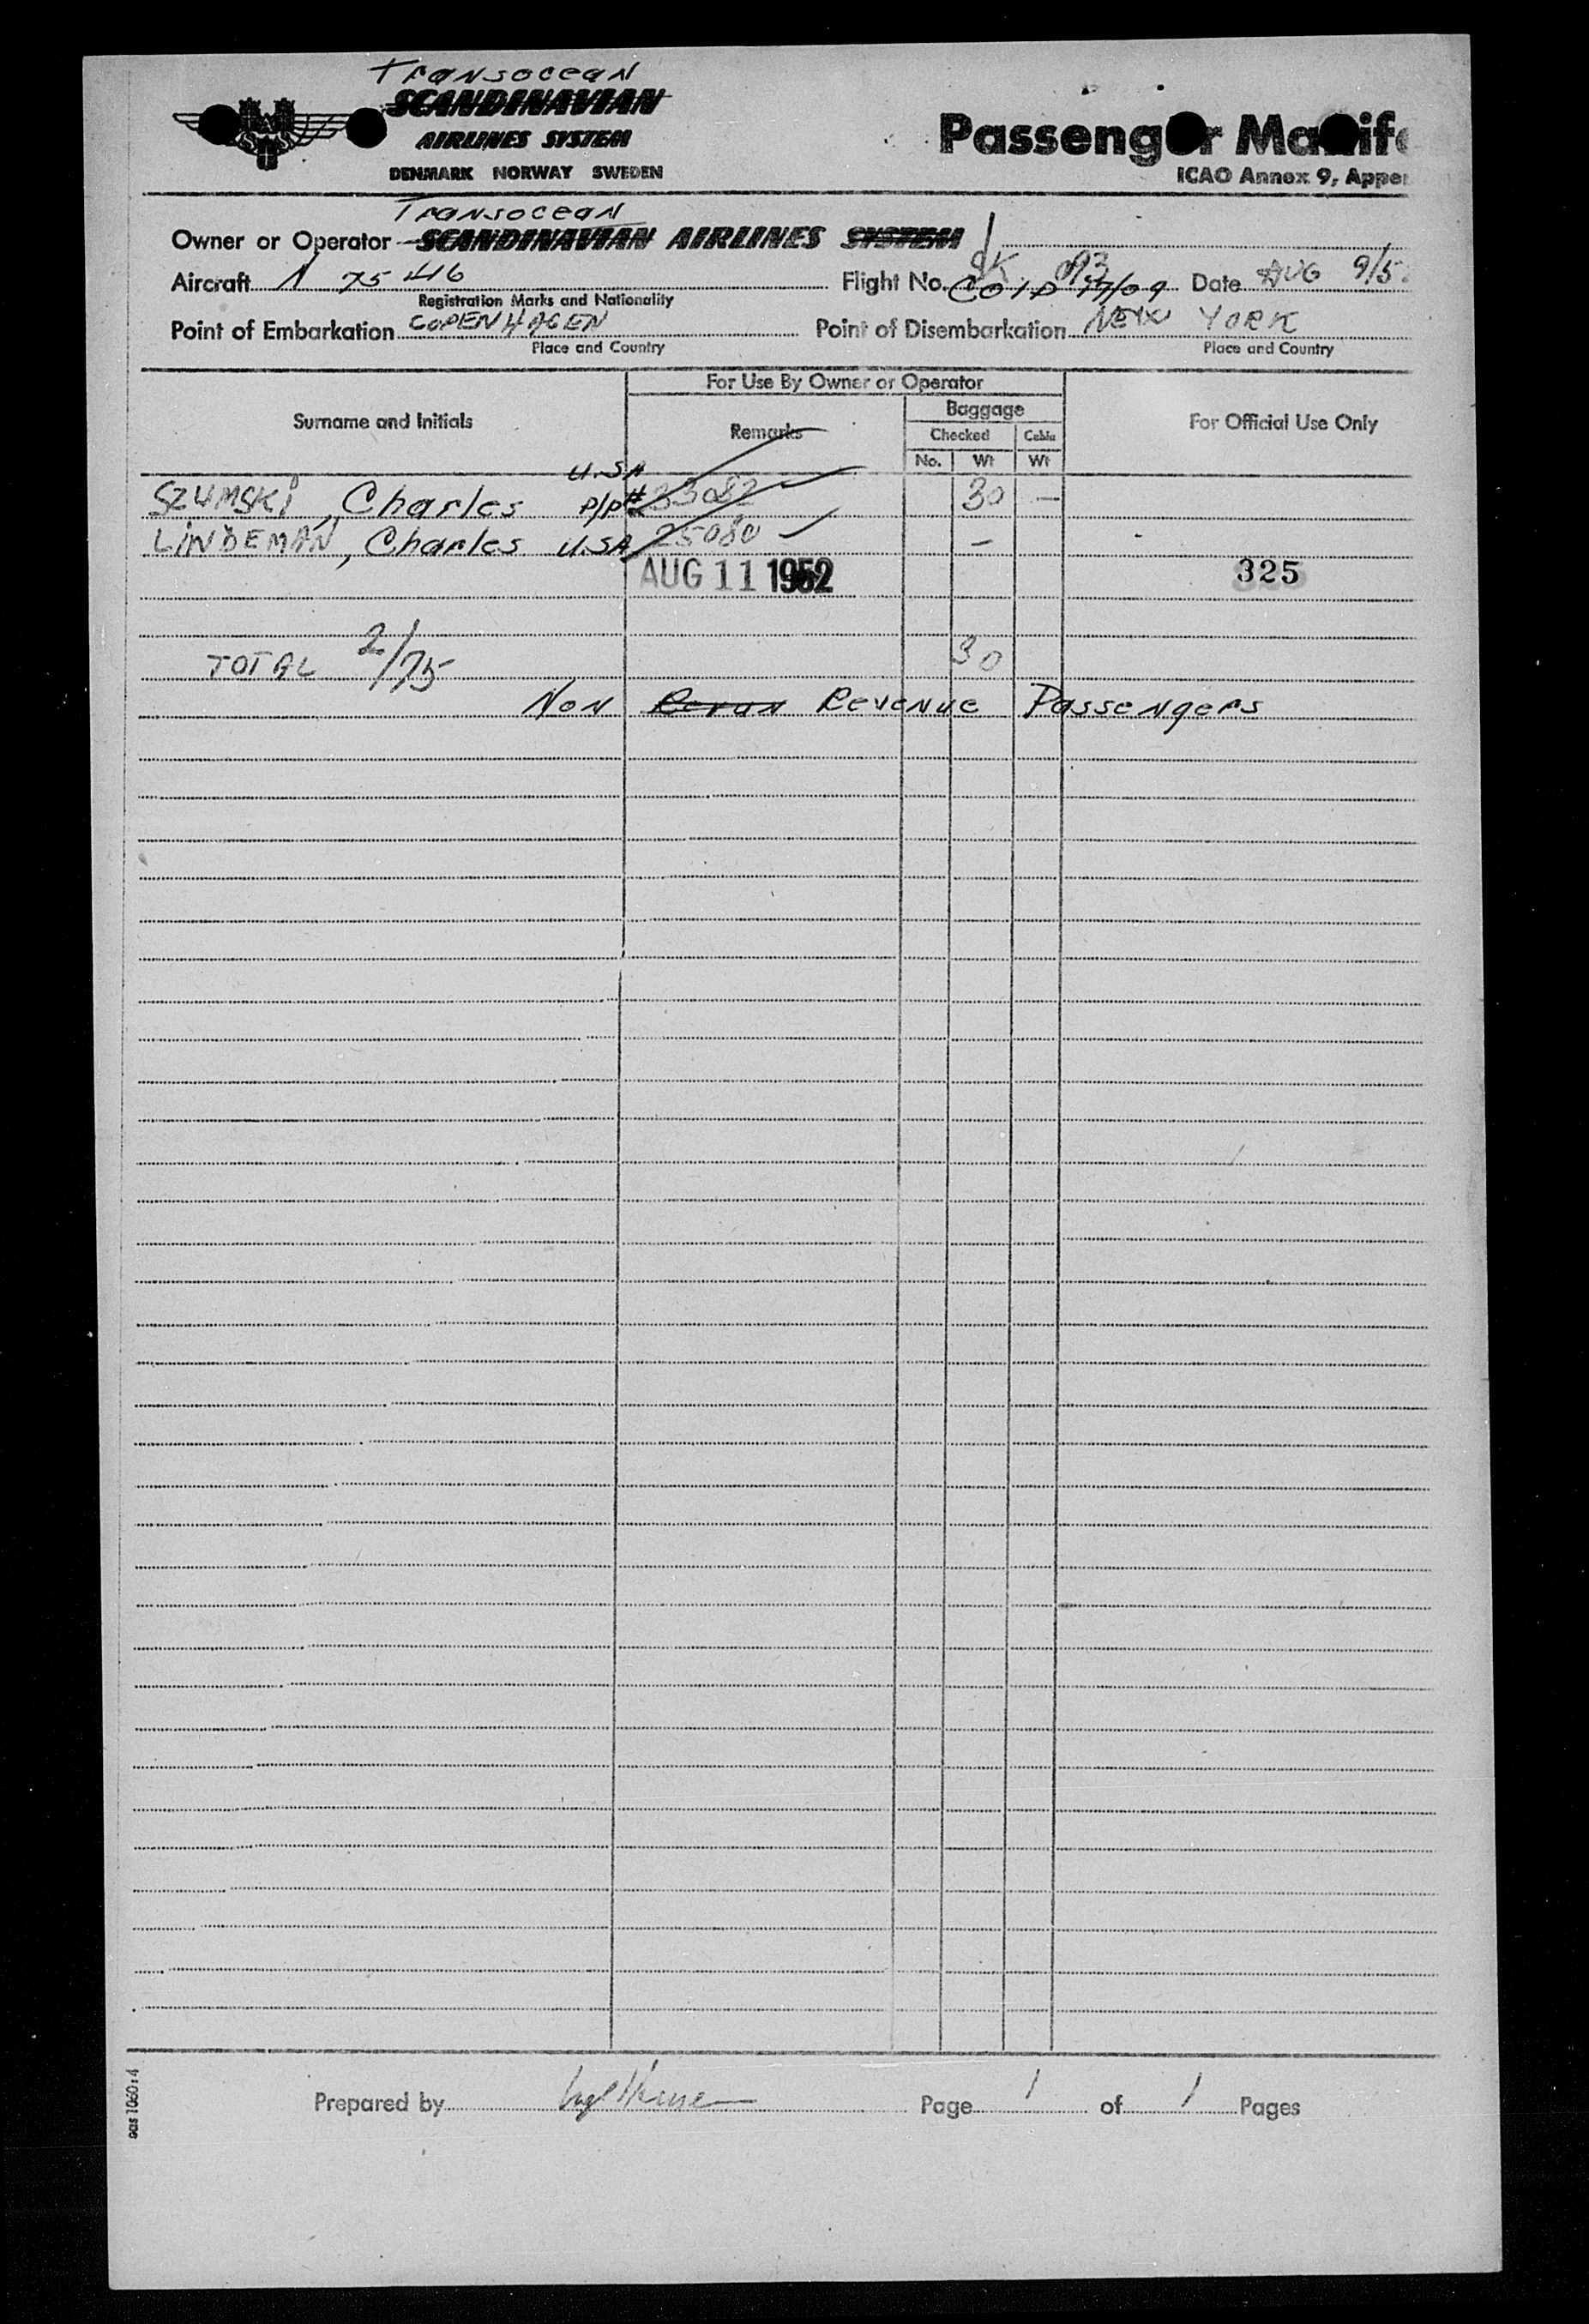 Transocean
SCANDINAVIAN
AIRLINES SYSTEM
DENMARK NORWAY SWEDEN
Passenger Manife
ICAO Annex 9, Appen
Transocean
Owner or Operator SCANDINAVIAN AIRLINES SYSTEM
SK 093
Aircraft N 75416 Flight No. Date AUG 9/5
Registration Marks and Nationality
Point of Embarkation COPENHAGEN Point of Disembarkation NEW YORK
Place and Country Place and Country
For Use By Owner or Operator
Surname and Initials Remarks Baggage For Official Use Only
Checked Cabin
No. Wt Wt
U.SA
SZUMSKI, Charles P/P# 33082 30 —
LINDEMAN, Charles U.SA 25080 —
AUG 11 1952 325
TOTAL 2/75 30
Non Revenue Passengers
Prepared by Page 1 of 1 Pages
sas 1060:4